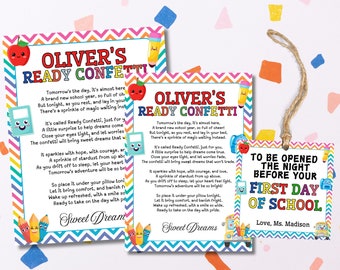 OLIVER'S
READY CONFETTI
Tomorrow's the day, it's almost here,
A brand new school year, so full of cheer!
But tonight, as you rest, and lay in your bed,
There's a sprinkle of magic waiting instead.
It's called Ready Confetti, just for you,
A little surprise to help dreams come true.
Once your eyes light, and fall
The confetti will bring sweet dreams that won't
It sparkles with hope, with courage, and
A sprinkle of stardust from up above.
As you drift off to sleep, let your heart feel light.
Tomorrow's adventure will be so bright!
So place it under your pillow
Let it bring comfort, and banish
Wake up refreshed, with a smile so wide,
Ready to take on the day with pride.
Sweet Dreams
OLIVER'S
READY CONFETTI
Tomorrow's the day, it's almost here,
A brand new school year, so full of cheer!
But tonight, as you rest, and lay in your bed,
There's a sprinkle of magic waiting instead.
It's called Ready Confetti, just for you,
A little surprise to help dreams come true.
Close your eyes tight, and
The confetti will bring sweet dreams that won't
It sparkles with hope, with courage, and love,
A sprinkle of stardust from up above.
As you drift off to sleep, let your heart feel light.
Tomorrow's adventure will be so bright!
So place it under your pillow
Let it bring comfort, and banish
Wake up refreshed, with a smile so wide,
Ready to take on the day with pride.
Sweet Dreams
TO BE OPENED
THE NIGHT
BEFORE YOUR
FIRST DAY
OF SCHOOL
Love, Ms. Madison